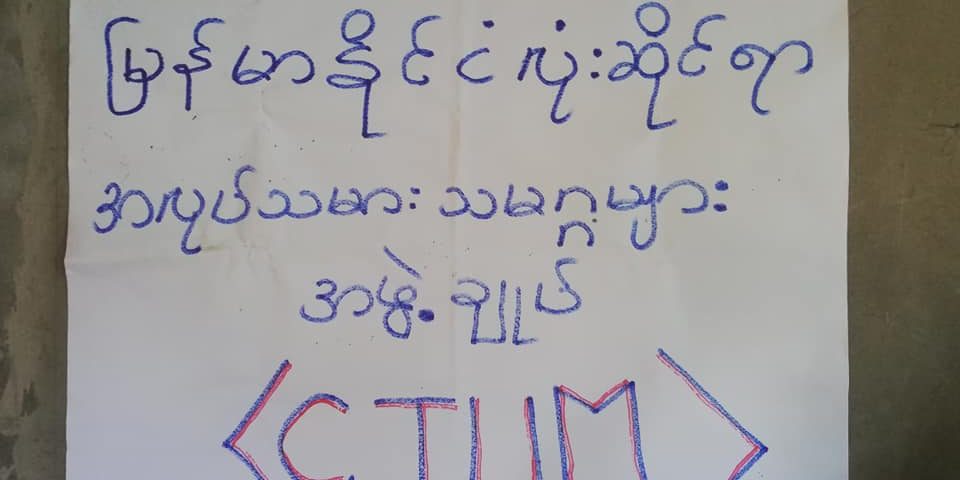 မြန်မာနိုင်ငံလုံးဆိုင်ရာ
အလုပ်သမား သမဂ္ဂများ
အဖွဲ့ချုပ်
<CTUM>